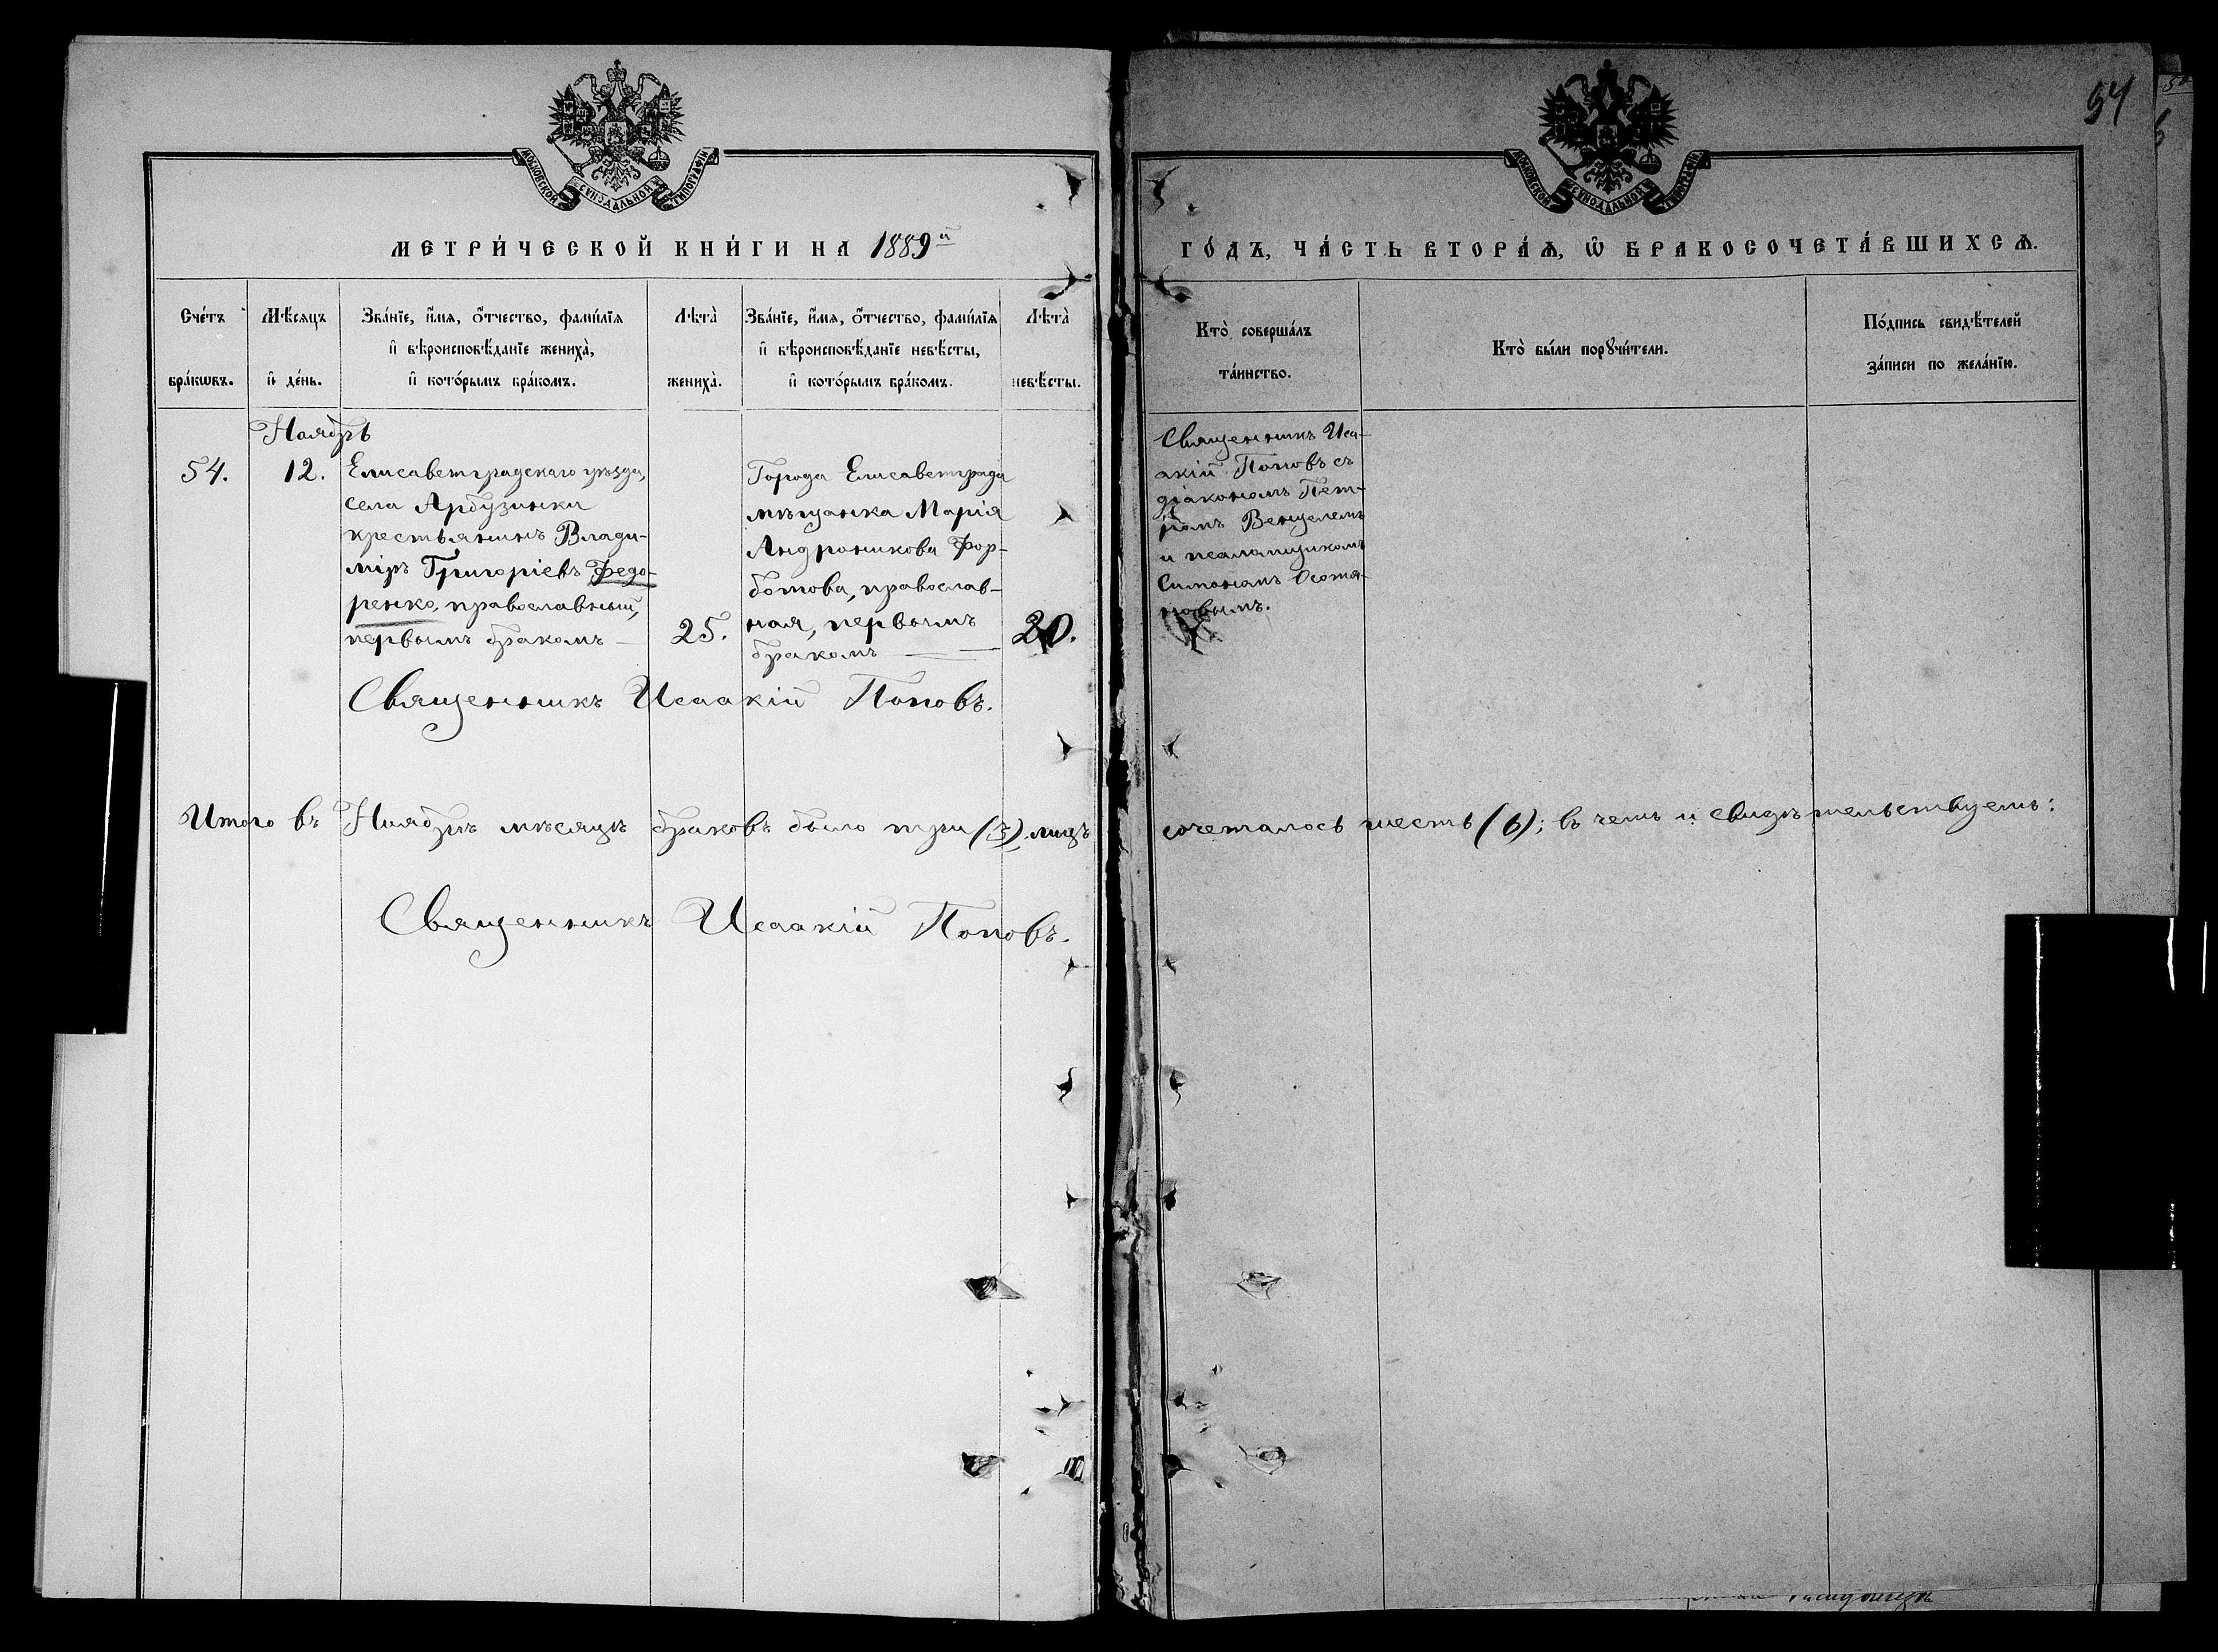 54
МОСКОВСКОЙ СѴНОДАЛЬНОЙ ТИПОГРАФІИ
МОСКОВСКОЙ СѴНОДАЛЬНОЙ ТИПОГРАФІИ
МЕТРИ́ЧЕСКОЙ КНИ́ГИ НА 1889й
ГО́ДЪ, ЧА́СТЬ ВТОРА́Ѧ, Ѽ БРАКОСОЧЕТА́ВШИХСѦ.
Сче́тъ
бра́кѡвъ.
Мѣ́сяцъ
и҆ де́нь.
Зва́нїе, и҆́мя, ѻ҆́тчество, фами́лїя
и҆ вѣроисповѣ́данїе жениха̀,
и҆ кото́рымъ бра́комъ.
Лѣта̀
жениха̀.
Зва́нїе, и҆́мя, ѻ҆́тчество, фами́лїя
и҆ вѣроисповѣ́данїе невѣ́сты,
и҆ кото́рымъ бра́комъ.
Лѣта̀
невѣ́сты.
Кто̀ соверша́лъ
та́инство.
Кто̀ бы́ли порꙋчи́тели.
По́дпись свидѣ́телей
за́писи по жела́нїю.
Ноябрь
54.
12.
Елисаветградскаго уѣзда,
села Арбузинки
крестьянинъ Влади-
міръ Григоріевъ Федо-
ренко, православный,
первымъ бракомъ
25.
Города Елисаветграда
мѣщанка Марія
Андроникова Фор-
ботова, православ-
ная, первымъ
бракомъ
20.
Священникъ Иса-
акій Поповъ съ
діакономъ Пет-
ромъ Венцелемъ
и псаломщикомъ
Симономъ
Священникъ Исаакій Поповъ.
Итого въ Ноябрѣ мѣсяцѣ браковъ было три (3), лицъ сочеталось шесть (6); въ чемъ и свидѣтельствуемъ:
Священникъ Исаакій Поповъ.